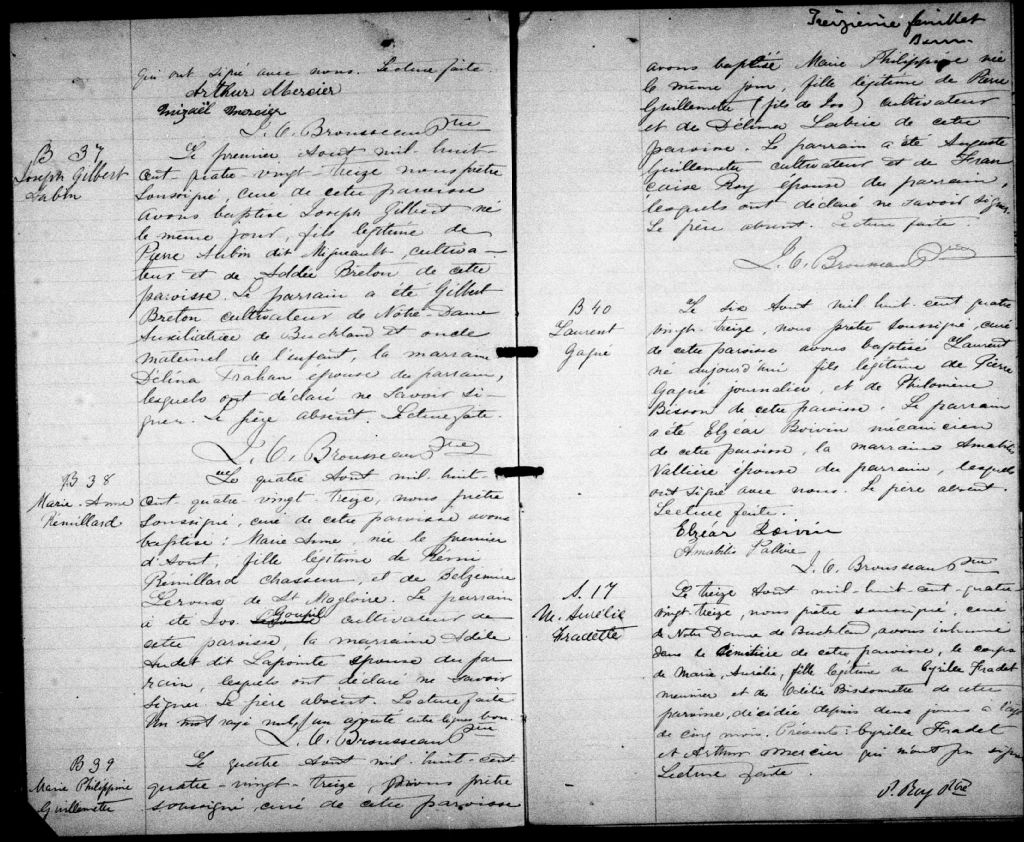 qui ont signé avec nous. Lecture faite.
Arthur Mercier
Mizaël Mercier
J. O. Brousseau Ptre
B 37
Joseph Gilbert
Le premier Aout mil huit
cent quatre-vingt-treize nous prêtre
soussigné, curé de cette paroisse
avons baptisé Joseph Gilbert né
le même jour, fils légitime de
Pierre Aubin dit Migneault, cultiva-
teur et de Addée Breton de cette
paroisse. Le parrain a été Gilbert
Breton cultivateur de Notre-Dame
Auxiliatrice de Buckland et oncle
maternel de l'enfant, la marraine
Délina Trahan épouse du parrain,
lesquels ont déclaré ne savoir si-
gner. Le père absent. Lecture faite.
J. O. Brousseau Ptre
B 38
Marie-Anne
Rémillard
Le quatre Aout mil-huit-
cent-quatre-vingt-treize, nous prêtre
soussigné, curé de cette paroisse avons
baptisé: Marie Anne, née le premier
d'Aout, fille légitime de Rémi
Rémillard chasseur, et de Belzemire
Leroux de St Magloire. Le parrain
a été Jos. Goupil cultivateur de
cette paroisse, la marraine Adèle
Audet dit Lapointe épouse du par
rain, lesquels ont déclaré ne savoir
signer. Le père absent. Lecture faite
Un mot rayé nul, un ajouté entre lignes bon.
J. O. Brousseau Ptre
B 39
Marie Philippine
Guillemette
Le quatre Aout mil-huit-cent
quatre-vingt-treize, nous prêtre
soussigné, curé de cette paroisse
Treizième feuillet
avons baptisé Marie Philippine née
le même jour, fille légitime de Pierre
Guillemette (fils de Jos) cultivateur
et de Délima Labrie de cette
paroisse. Le parrain a été Auguste
Guillemette cultivateur et de Fran
caise Roy épouse du parrain,
lesquels ont déclaré ne savoir signer.
Le père absent. Lecture faite.
J. O. Brousseau Ptre
B 40
Laurent
Gagné
Le six Aout mil-huit-cent quatre
vingt-treize, nous prêtre soussigné, curé
de cette paroisse avons baptisé Laurent
né aujourd'hui fils légitime de Pierre
Gagné journalier, et de Philomène
Bisson de cette paroisse. Le parrain
a été Elzéar Boivin mécanicien
de cette paroisse, la marraine Amabilis
Vallière épouse du parrain, lesquels
ont signé avec nous. Le père absent.
Lecture faite.
Elzéar Boivin
Amabilis Vallière
J. O. Brousseau Ptre
S. 17
M. Aurélie
Fradette
Le treize Aout mil-huit-cent-quatre
vingt-treize, nous prêtre soussigné, curé
de Notre Dame de Buckland, avons inhumé
dans le cimetière de cette paroisse, le corps
de Marie, Aurélie, fille légitime de Cyrille Fradet
meunier et de Odélie Bissonnette de cette
paroisse, décédée depuis deux jours à l'age
de cinq mois. Présents: Cyrille Fradet
et Arthur Mercier qui n'ont pu signer
Lecture faite.
P. Roy Ptre